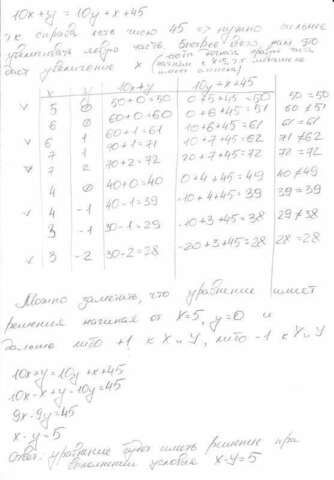 10x+y = 10y+x+45
т.к справа есть число 45 => нужно сильнее
увеличивать левую часть. Быстрее всего нам это
даст увеличение x
x y 10x+y 10y+x+45
v 5 0 50+0=50 0+5+45=50 50=50
6 0 60+0=60 0+6+45=51 60≠51
v 6 1 60+1=61 10+6+45=61 61=61
7 1 70+1=71 10+7+45=62 71≠62
v 7 2 70+2=72 20+7+45=72 72=72
4 0 40+0=40 0+4+45=49 40≠49
v 4 -1 40-1=39 -10+4+45=39 39=39
3 -1 30-1=29 -10+3+45=38 29≠38
v 3 -2 30-2=28 -20+3+45=28 28=28
Можно заметить, что уравнение имеет
решения начиная от x=5, y=0 и
дальше либо +1 к x и y, либо -1 к x и y
10x+y=10y+x+45
10x-x+y-10y=45
9x-9y=45
x-y=5
Ответ: уравнение будет иметь решение при
выполнении условия x-y=5